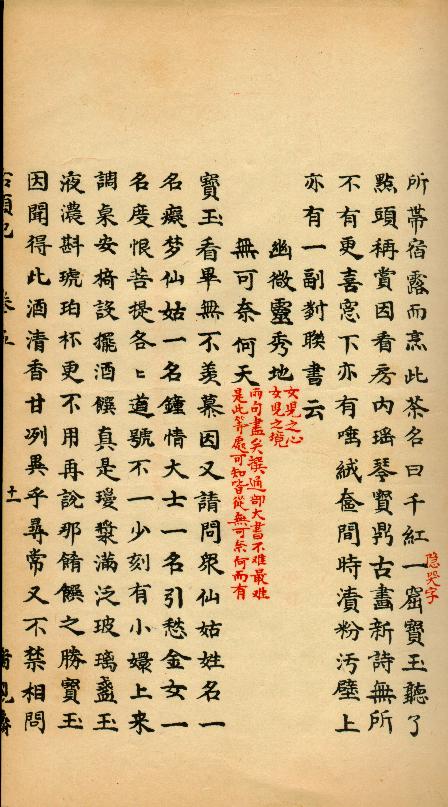 所帶宿露而烹此茶名曰千紅一窟寶玉聽了
隐哭字
點頭稱賞因看房内瑶琴寳鼎古畫新詩無所
不有更喜窓下亦有唾絨奩間時漬粉汚壁上
亦有一副對聯書云
幽微靈秀地
女児之心
女児之境
無可奈何天
兩句盡矣撰通部大書不难最难
是此等處可知皆從無可奈何而有
寶玉看畢無不羡慕因又請問衆仙姑姓名一
名癡梦仙姑一名鍾情大士一名引愁金女一
名度恨菩提各〻道號不一少刻有小嬛上来
調桌安椅設擺酒饌真是瓊漿滿泛玻璃盞玉
液濃斟琥珀杯更不用再說那餚饌之勝寶玉
因聞得此酒清香甘冽異乎尋常又不禁相問
石頭記 卷五 十一